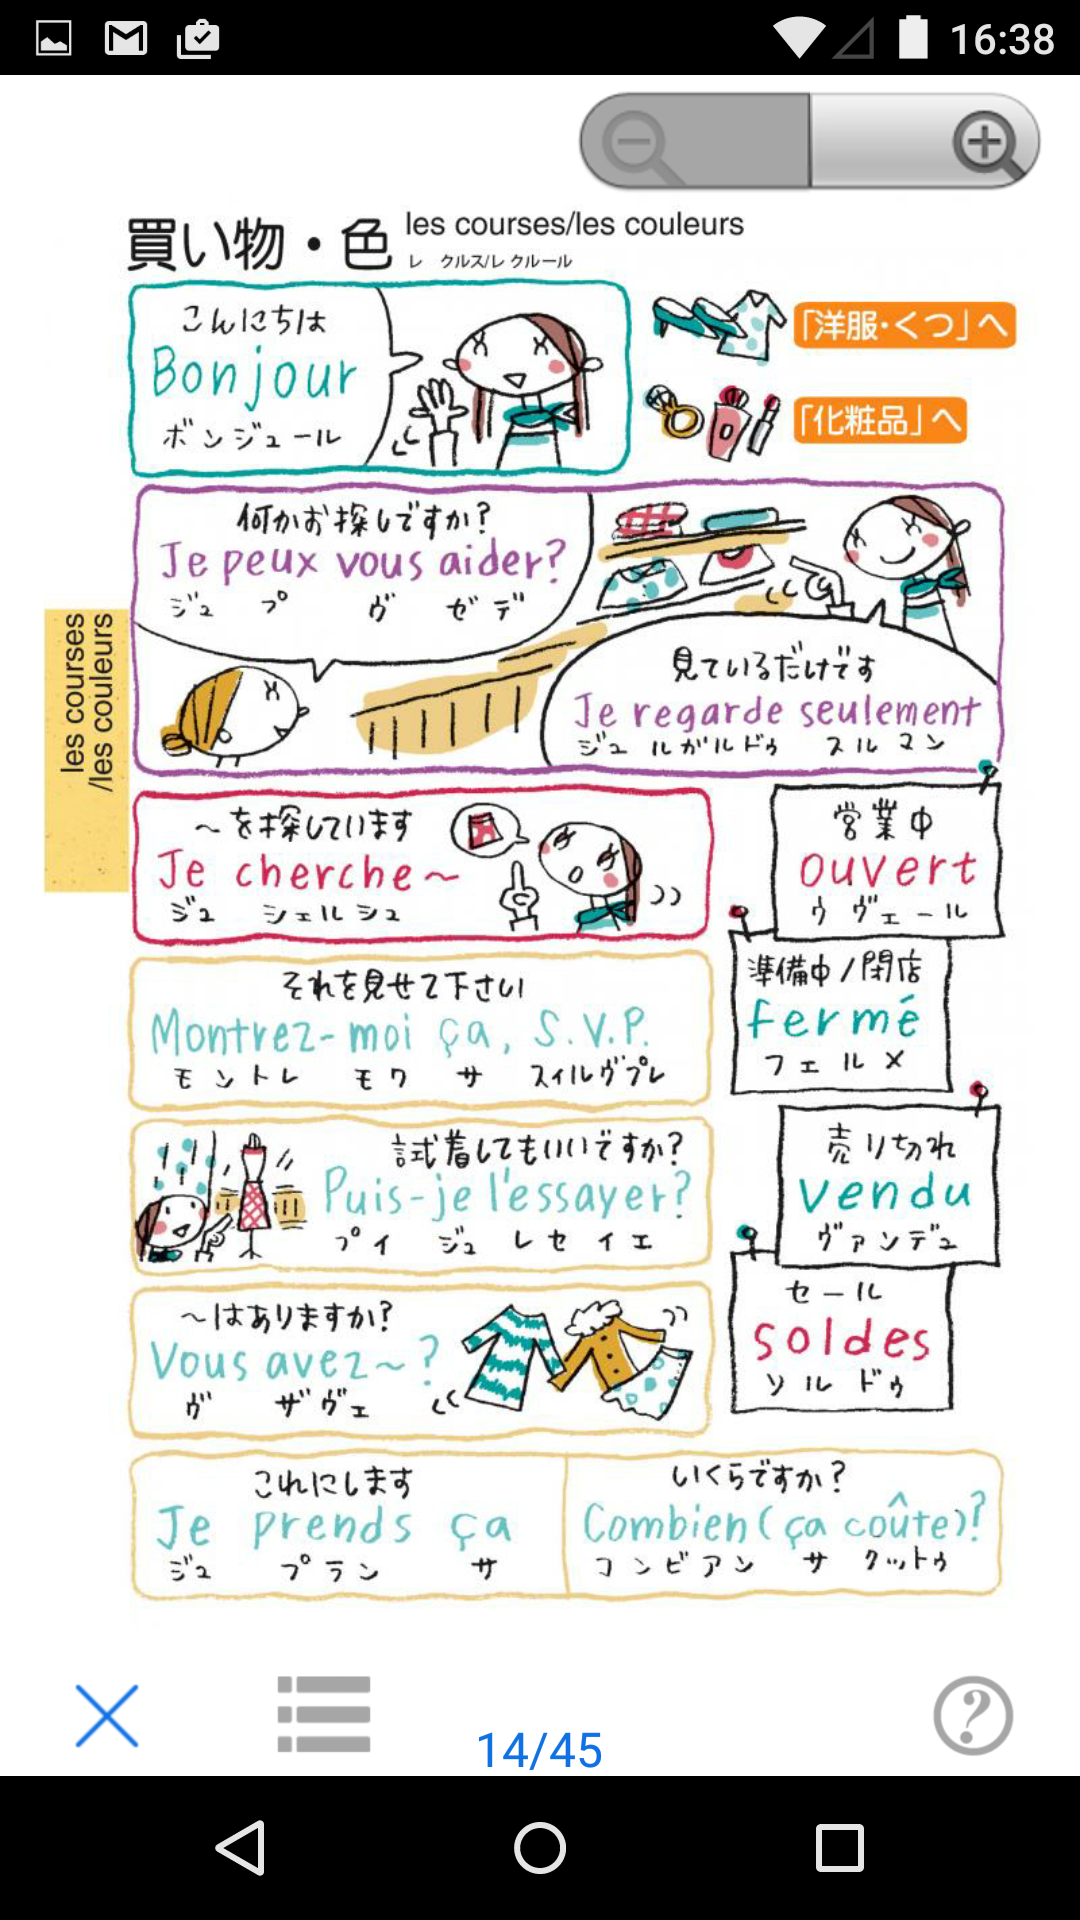 16:38
買い物・色 les courses/les couleurs
レ クルス/レ クルール
こんにちは
Bonjour
ボンジュール
「洋服・くつ」へ
「化粧品」へ
何かお探しですか?
Je peux vous aider?
ジュ プ ヴ ゼデ
見ているだけです
Je regarde seulement
ジュ ルガルドゥ スルマン
les courses
/les couleurs
〜を探しています
Je cherche〜
ジュ シェルシュ
営業中
ouvert
ウヴェール
準備中/閉店
fermé
フェルメ
それを見せて下さい
Montrez-moi ça, S.V.P.
モントレ モワ サ スィルヴプレ
試着してもいいですか?
Puis-je l'essayer?
プイ ジュ レセイエ
売り切れ
vendu
ヴァンデュ
〜はありますか?
Vous avez〜?
ヴ ザヴェ
セール
soldes
ソルドゥ
これにします
Je prends ça
ジュ プラン サ
いくらですか?
Combien (ça coûte)?
コンビアン サ クットゥ
14/45
?